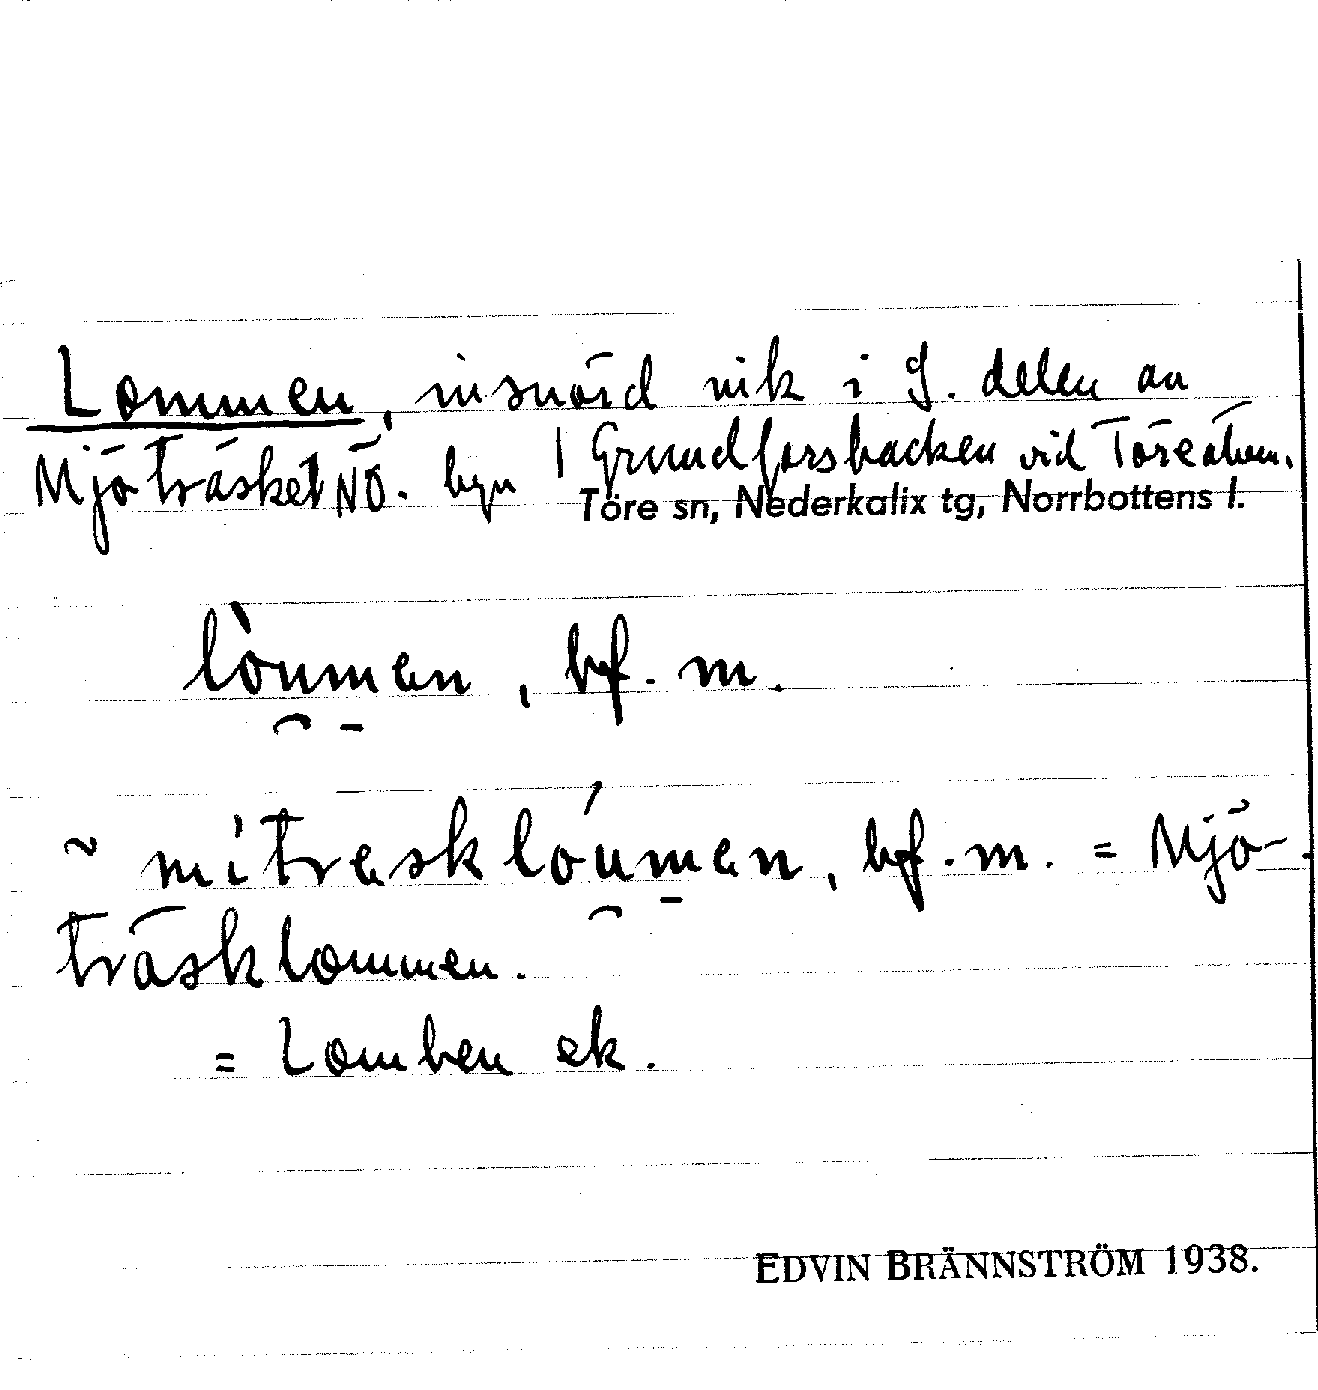 Lommen, insnörd vik i S. delen av
Mjöträsket NÖ. byn / Grundforsbacken vid Töreälven.
Töre sn, Nederkalix tg, Norrbottens l.
lòuman, bf. m.
~ mitrasklóuman, bf. m. = Mjö-
träsklommen.
= Lomben ek.
EDVIN BRÄNNSTRÖM 1938.